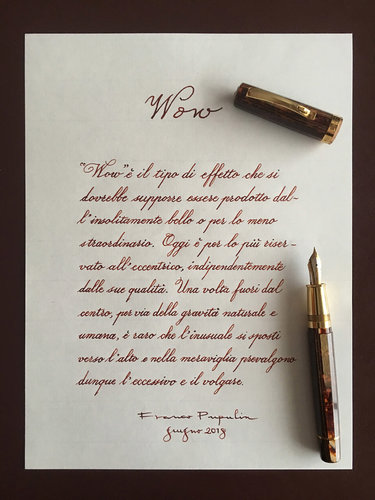 Wow
"Wow" è il tipo di effetto che si
dovrebbe supporre essere prodotto dal-
l'insolitamente bello o per lo meno
straordinario. Oggi è per lo più riser-
vato all'eccentrico, indipendentemente
dalle sue qualità. Una volta fuori dal
centro, per via della gravità naturale e
umana, è raro che l'inusuale si sposti
verso l'alto e nella meraviglia prevalgono
dunque l'eccessivo e il volgare.
Franco Pupulin
giugno 2018